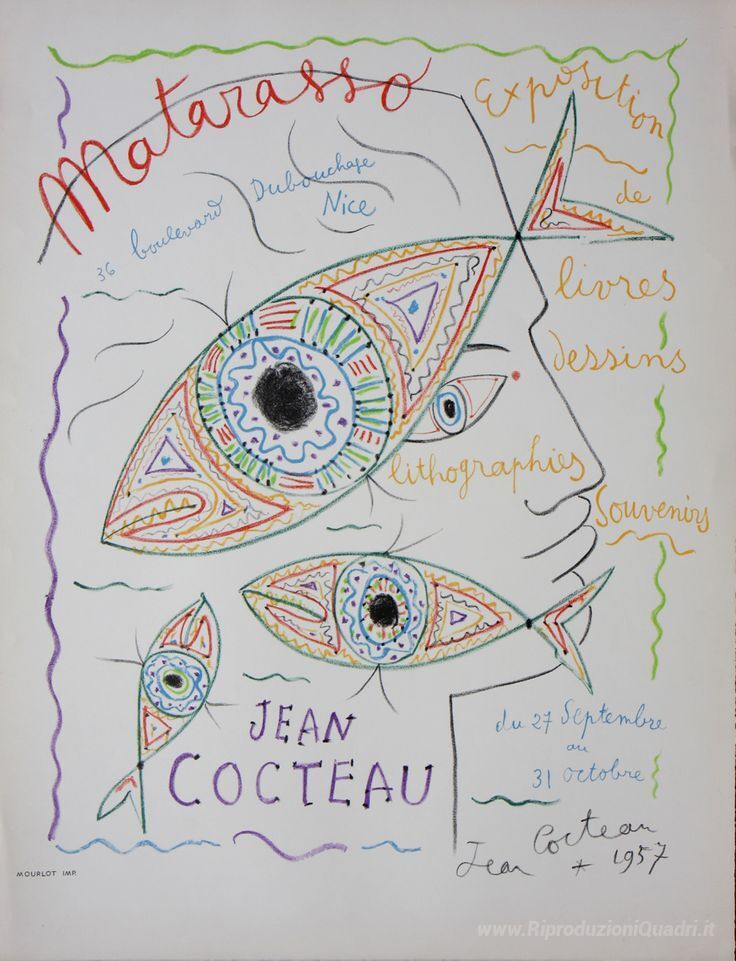 Matarasso
36 boulevard Dubouchage
Nice
Exposition
de
livres
dessins
lithographies
Souvenirs
JEAN
COCTEAU
du 27 Septembre
au
31 octobre
Jean Cocteau
* 1957
MOURLOT IMP.
www.RiproduzioniQuadri.it